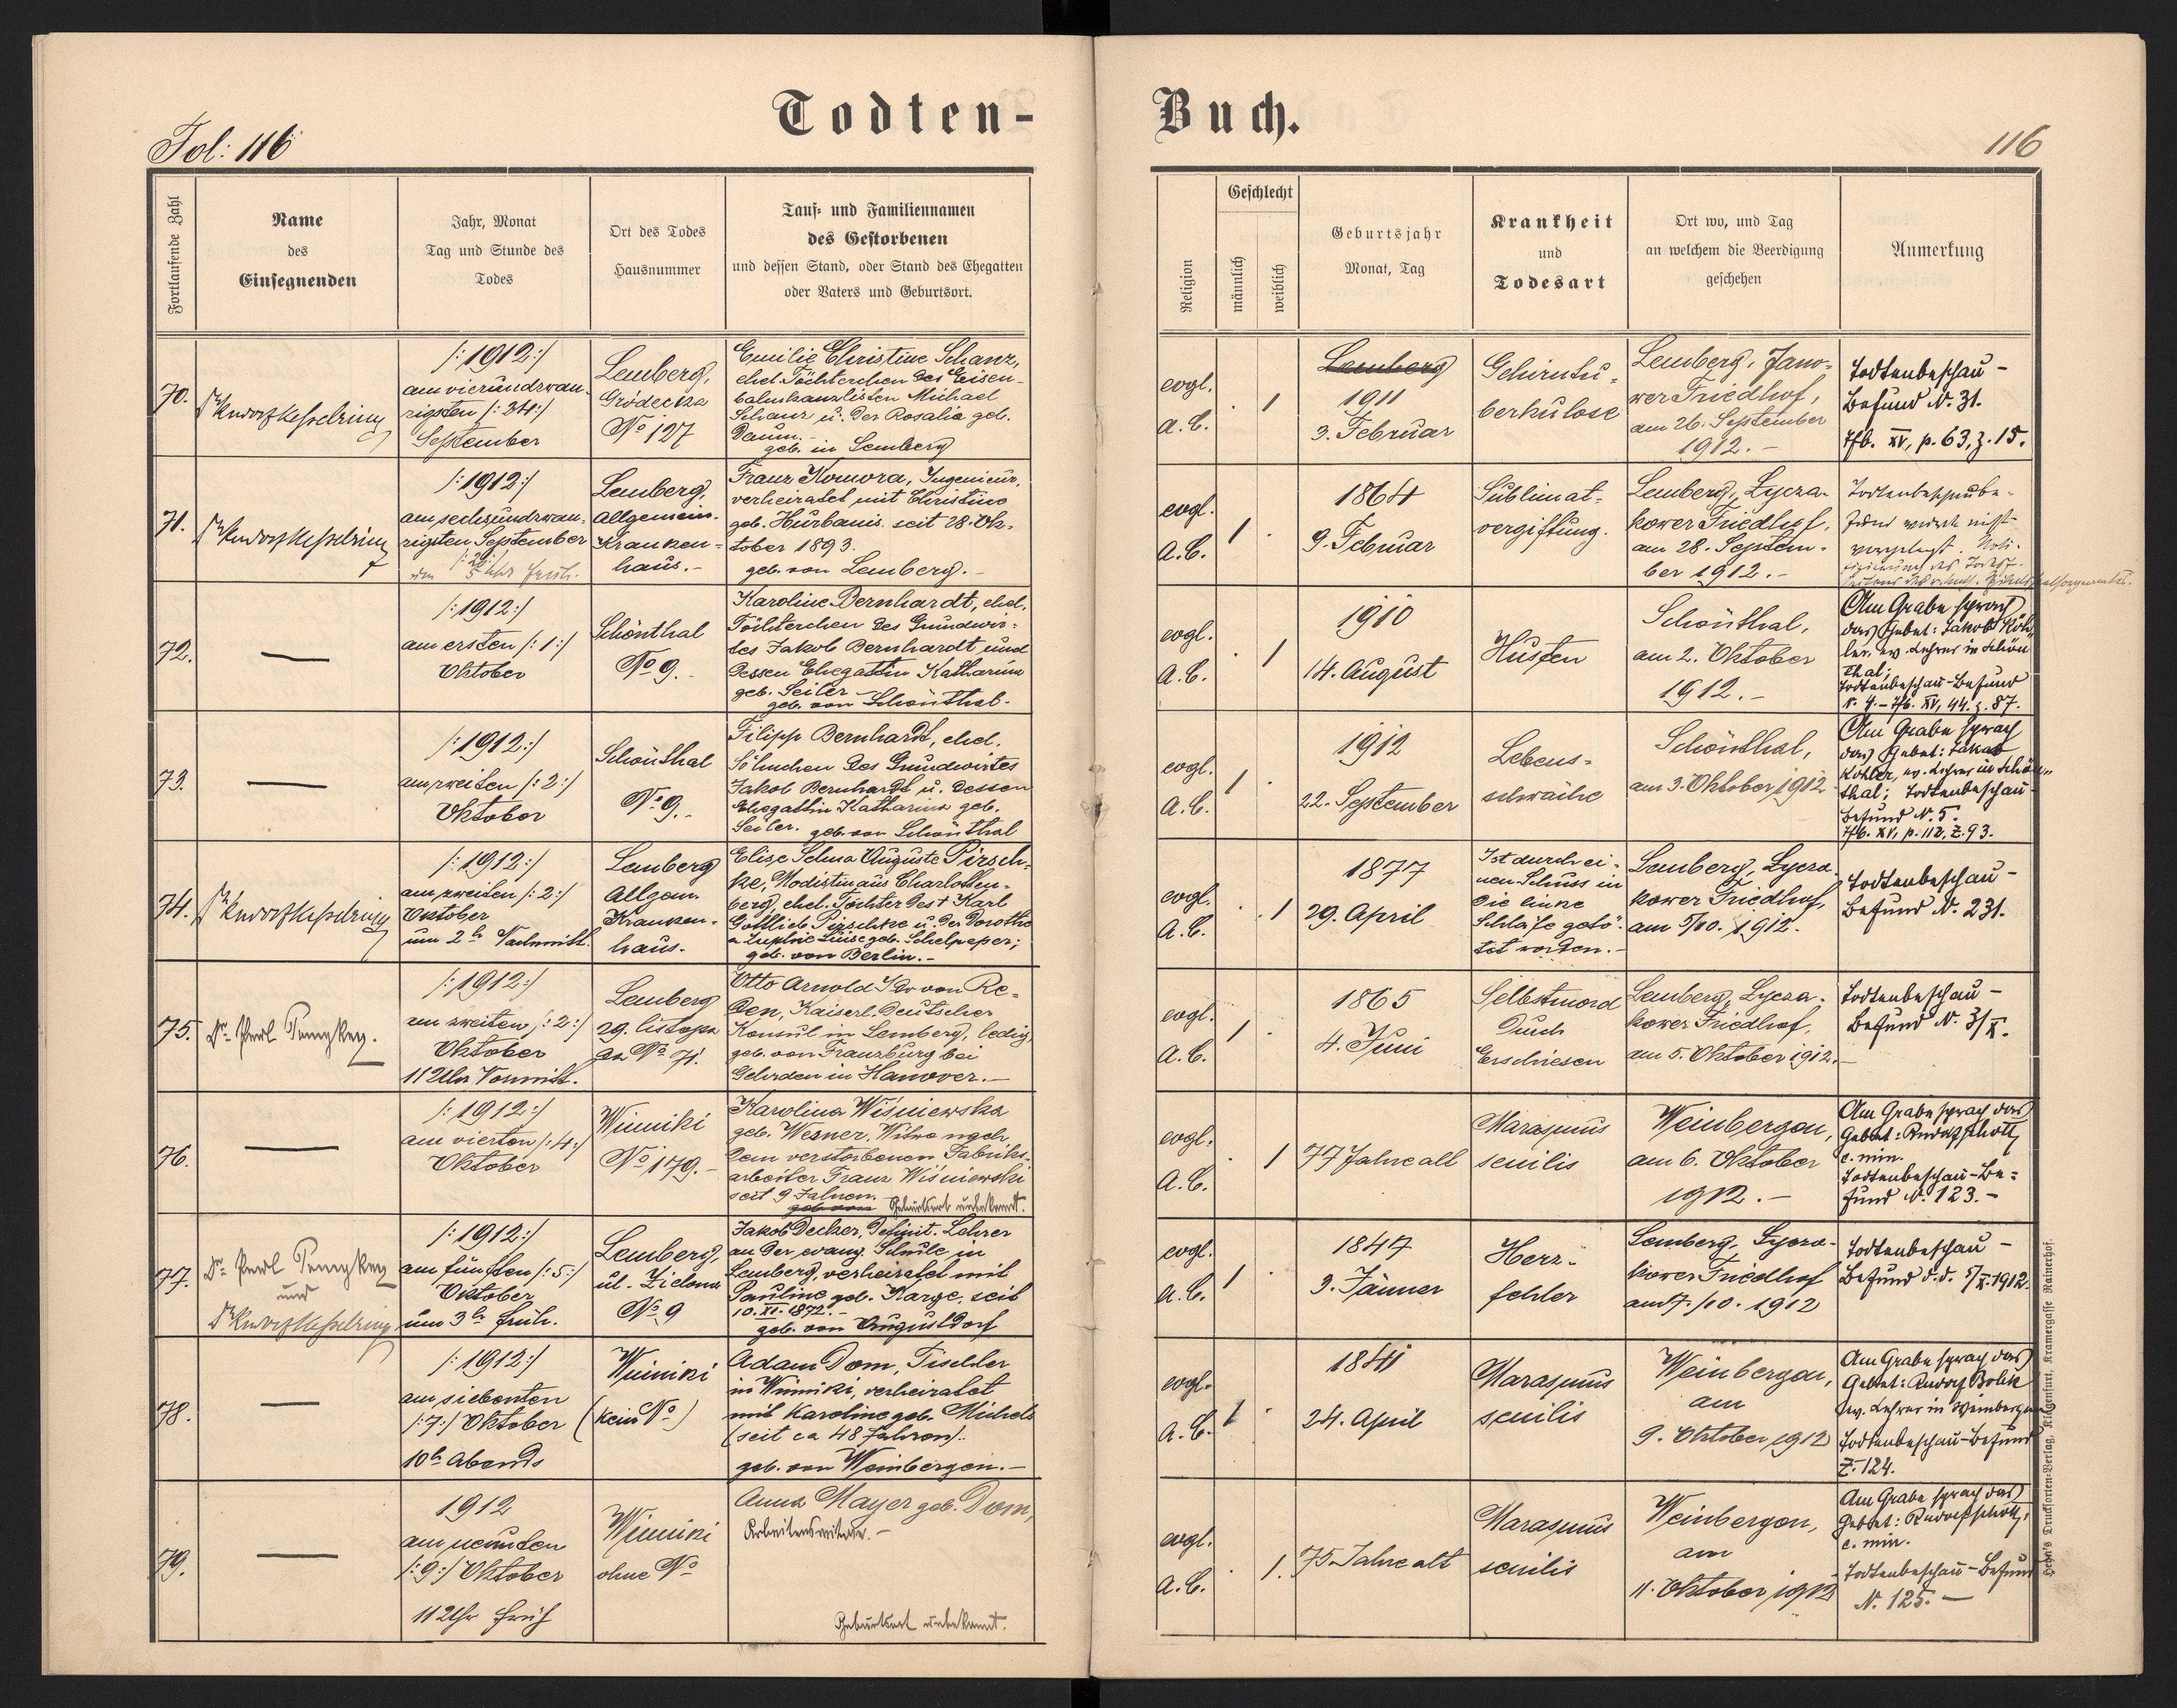 Todten-
Buch.
Fol: 116
116
Fortlaufende Zahl
Name
des
Einsegnenden
Jahr, Monat
Tag und Stunde des
Todes
Ort des Todes
Hausnummer
Tauf- und Familiennamen
des Gestorbenen
und dessen Stand, oder Stand des Ehegatten
oder Vaters und Geburtsort.
Religion
Geschlecht
männlich
weiblich
Geburtsjahr
Monat, Tag
Krankheit
und
Todesart
Ort wo, und Tag
an welchem die Beerdigung
geschehen
Anmerkung
70.
Rudolf Kesselring
/:1912:/
am vierundzwan-
zigsten /:24:/
September
Lemberg,
Gródecka
No 127
Emilie Christine Schanz,
ehel. Töchterchen des Eisen-
bahnkanzlisten Michael
Schanz u. der Rosalia geb.
Daum.-
geb. in Lemberg
evgl.
A.C.
1
Lemberg
1911
3. Februar
Gehirntu-
berkulose
Lemberg, Jano-
wer Friedhof,
am 26. September
1912.-
Todtenbeschau-
Befund N. 31.
Tfb. XV, p. 63, z. 15.
71.
Rudolf Kesselring
/:1912:/
am sechsundzwan-
zigsten September
/:26:/
um 5 Uhr früh.
Lemberg,
Allgemein.
Kranken-
haus.-
Franz Komora, Ingenieur,
verheiratet mit Christine
geb. Hurbanis seit 28. Ok-
tober 1893.
geb. von Lemberg.-
evgl.
A.C.
1
1864
9. Februar
Sublimat-
vergiftung.
Lemberg, Lycza-
kower Friedhof,
am 28. Septem-
ber 1912.-
Todtenbeschaube-
fund wurde nicht
vorgelegt.
des
72.
—
/:1912:/
am ersten /:1:/
Oktober
Schönthal
No 9.
Karoline Bernhardt, ehel.
Töchterchen des Grundwir-
tes Jakob Bernhardt und
dessen Ehegattin Katharina
geb. Seiler.-
geb. von Schönthal.
evgl.
A.C.
1
1910
14. August
Husten
Schönthal,
am 2. Oktober
1912.-
Am Grabe sprach
das Gebet: Jakob Köh-
ler, ev. Lehrer in Schön
thal;
Todtenbeschau-Befund
N. 4.- Tfb. XV, 44. z. 87.
73.
—
/:1912:/
am zweiten /:2:/
Oktober
Schönthal
No 9.
Filipp Bernhardt, ehel.
Söhnchen des Grundwirtes
Jakob Bernhardt u. dessen
Ehegattin Katharina geb.
Seiler. geb. von Schönthal
evgl.
A.C.
1
1912
22. September
Lebens-
schwäche
Schönthal,
am 3. Oktober 1912
Am Grabe sprach
das Gebet: Jakob
Köhler, ev. Lehrer in Schön-
thal; Todtenbeschau-
Befund N. 5.
Tfb. XV, p. 112, Z. 93.
74.
Rudolf Kesselring
/:1912:/
am zweiten /:2:/
Oktober
um 2h Nachmitt.
Lemberg
Allgem.
Kranken-
haus.
Elise Selma Auguste Pirsch-
ke, Modistin aus Charlotten-
berg, ehel. Tochter des + Karl
Gottlieb Pirschke u. der Dorothe
Luise geb. Schelpeper;
geb. von Berlin.-
evgl.
A.C.
1
1877
29. April
Ist durch ei-
nen Schuss in
die linke
Schläfe getö-
tet worden.-
Lemberg, Lycza-
kower Friedhof,
am 5/10. 1912.
Todtenbeschau-
Befund N. 231.
75.
Dr. Paul
/:1912:/
am zweiten /:2:/
Oktober
11 Uhr Vormitt.
Lemberg
29. listopa
da No 71.
Otto Arnold von Re-
den, Kaiserl. Deutscher
Konsul in Lemberg, ledig,
geb. von Franzburg bei
Gehrden in Hanover.-
evgl.
A.C.
1
1865
4. Juni
Selbstmord
Durch
Erschiesen
Lemberg, Lycza-
kower Friedhof,
am 5. Oktober 1912.-
Todtenbeschau-
Befund N. 3/X.
76.
—
/:1912:/
am vierten /:4:/
Oktober
Winniki
No 179.-
Karolina Wiśniewska
geb. Wesner, Witwe nach
dem verstorbenen Fabriks-
arbeiter Franz Wiśniewski
seit 9 Jahren.-
geb. von Geburtsort unbekannt.
evgl.
A.C.
1
77 Jahre alt
Marasmus
senilis
Weinbergen,
am 6. Oktober
1912.-
Am Grabe sprach das
Gebet: Rudolf Schott,
c. min.
Todtenbeschau-Be-
fund N. 123.-
77.
Dr. Paul
und
Rudolf Kesselring
/:1912:/
am fünften /:5:/
Oktober
um 3h früh.
Lemberg,
ul. Zielona
No 9
Jakob Decker, Definit. Lehrer
an der evang. Schule in
Lemberg, verheiratet mit
Pauline geb. Karge, seit
10. XI. 1872.-
geb. von Augustdorf
evgl.
A.C.
1
1847
3. Jänner
Herz-
fehler
Lemberg, Lycza-
kower Friedhof
am 7./10. 1912
Todtenbeschau-
Befund d.d. 5/X. 1912.
78.
—
/:1912:/
am siebenten
/:7:/ Oktober
10h Abends
Winniki
(kein No)
Adam Dom, Tischler
in Winniki, verheiratet
mit Karoline geb. Michels
(seit ca 48 Jahren).
geb. von Weinbergen.-
evgl.
A.C.
1
1841
24. April
Marasmus
senilis
Weinbergen,
am
9. Oktober 1912
Am Grabe sprach das
Gebet: Rudolf Bolek
ev. Lehrer in Weinbergen
Todtenbeschau-Befund
Z. 124.
79.
—
1912
am neunten
/:9:/ Oktober
11 Uhr früh
Winniki
ohne No
Anna Mayer geb. Dom,
Arbeiterswitwe.-
Geburtsort unbekannt.
evgl.
A.C.
1.
75 Jahre alt
Marasmus
senilis
Weinbergen,
am
11. Oktober 1912
Am Grabe sprach das
Gebet: Rudolf Schott,
c. min.
Todtenbeschau-Befund
N. 125.-
Drucksorten-Verlag, Klagenfurt, Kramergasse Rainerhof.